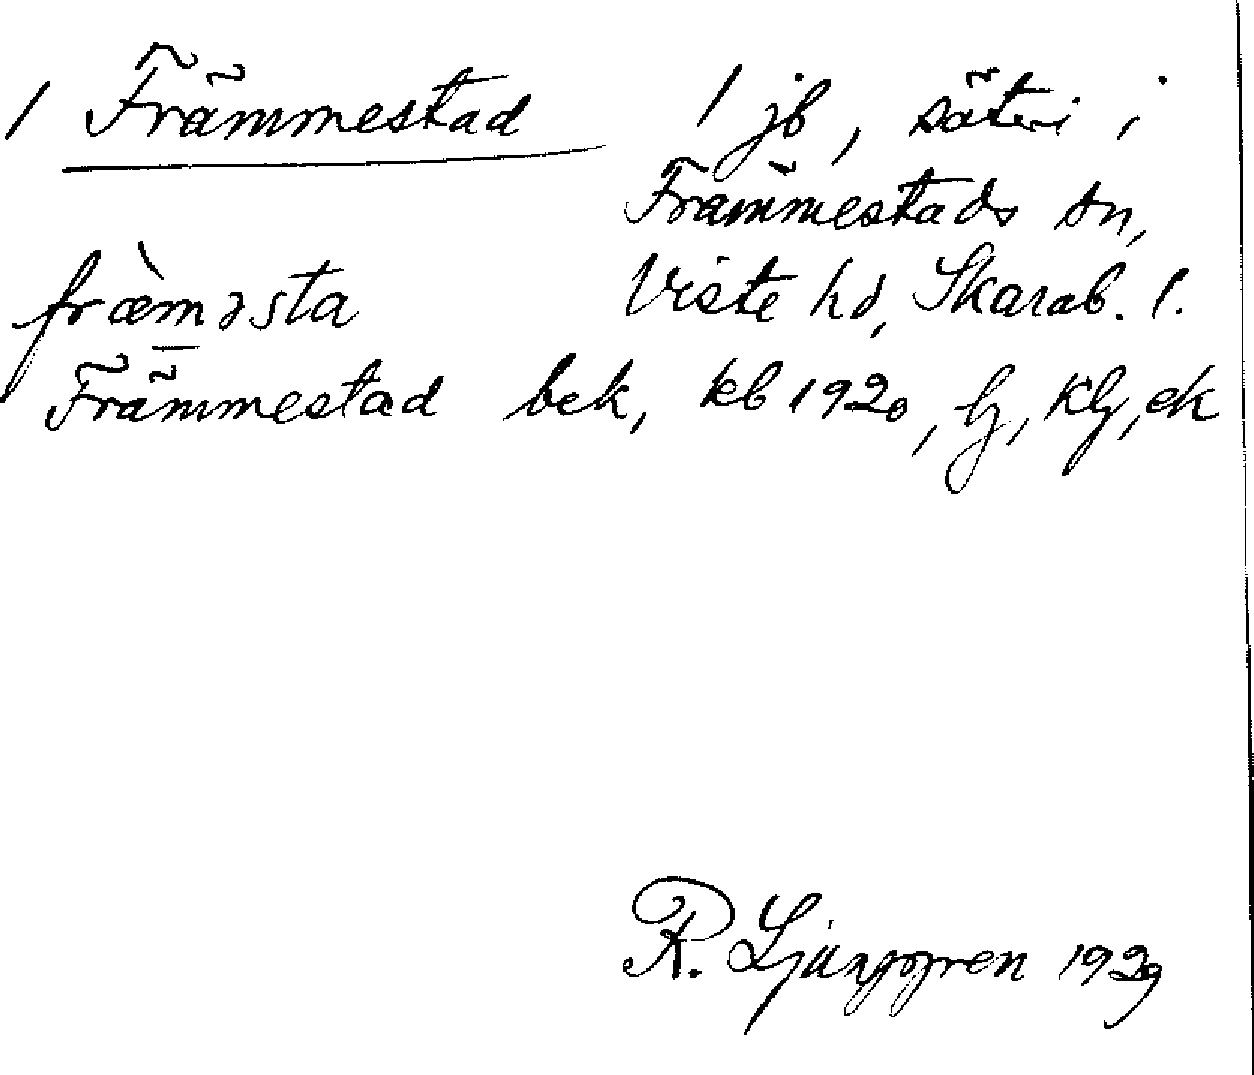 1 Främmestad 1 jb, säteri i
Främmestads sn,
fræ̀m̲əsta Viste hd, Skarab. l.
Främmestad bek, kb 1920, lj, klj, ek
R. Ljunggren 1929